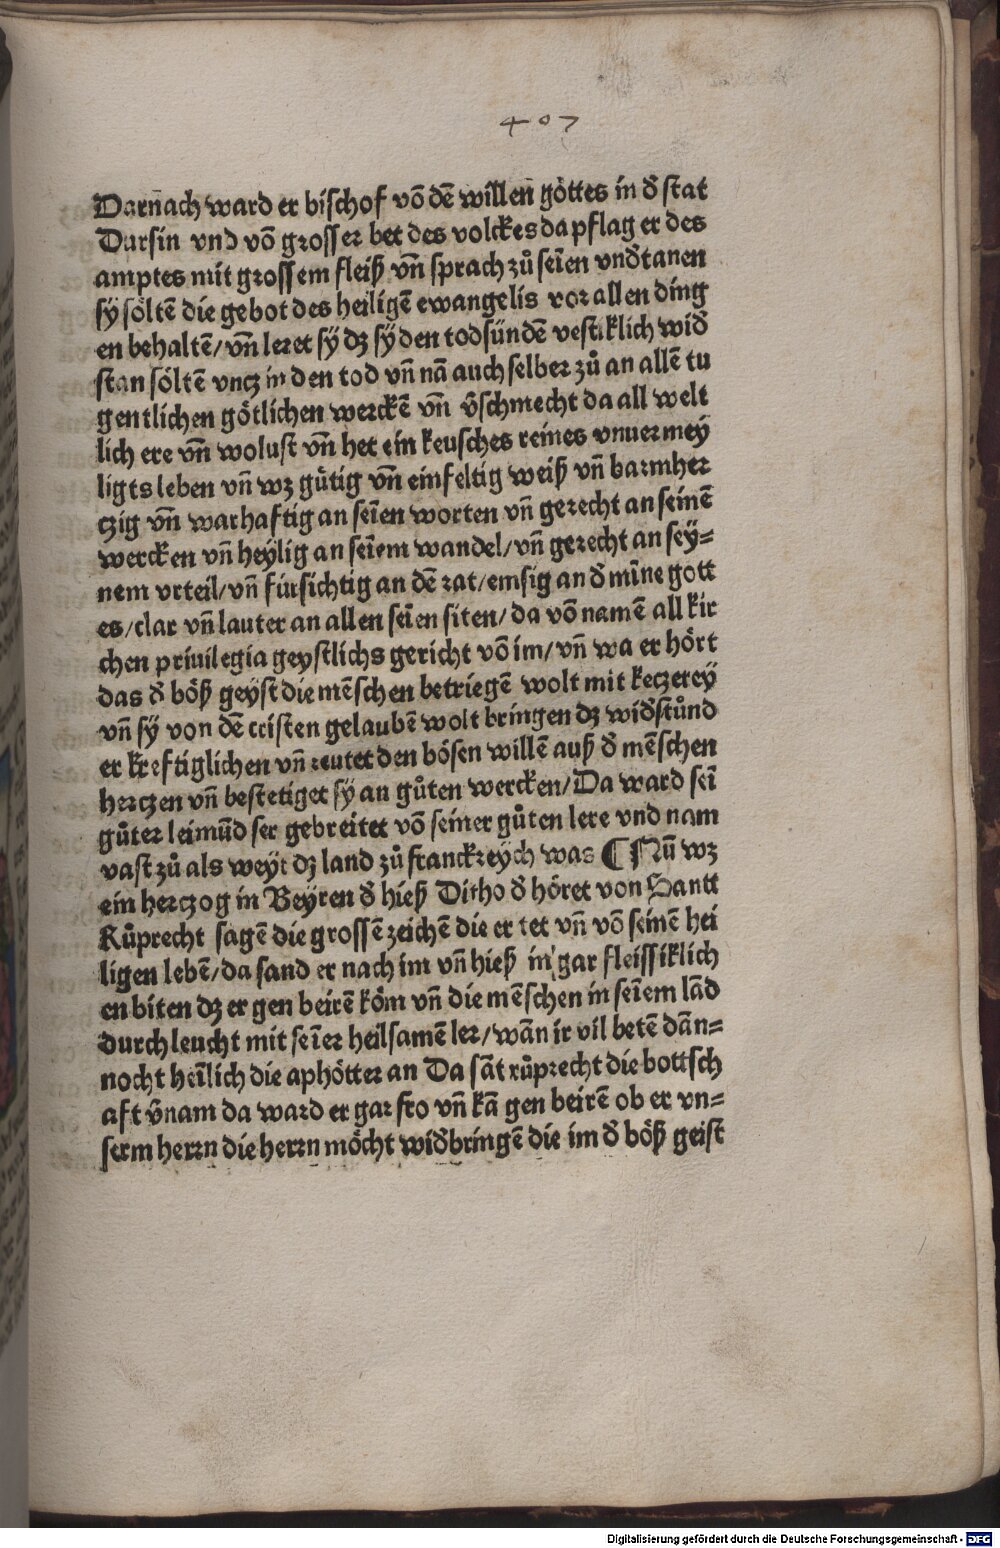 407
Darnach ward er bischof vō dē willen göttes in d̄ stat
Dursin vnd vō grosser bet des volckes da pflag er des
amptes mit grossem fleiß vn̄ sprach zů sei͞en vnd̄tanen
sy söltē die gebot des heiligē ewangelis vor allen ding
en behaltē/ vn̄ leret sy dz sy den todsündē vestiklich wid̄
stan söltē vncz in den tod vn̄ nā auch selber zů an allē tu
gentlichen götlichen werckē vn̄ v̄schmecht da all welt
lich ere vn̄ wolust vn̄ het ein keusches reines vnuermey
ligts leben vn̄ wz gůtig vn̄ einfeltig weiß vn̄ barmher
czig vn̄ warhaftig an sei͞en worten vn̄ gerecht an seinē
wercken vn̄ heylig an sei͞em wandel/ vn̄ gerecht an sey⸗
nem vrteil/ vn̄ fürsichtig an dē rat/ emsig an d̄ mı̄ne gott
es/ clar vn̄ lauter an allen sei͞en siten/ da vō namē all kir
chen priuilegia geystlichs gericht vō im/ vn̄ wa er hört
das d̄ böß geyst die mēschen betriegē wolt mit keczerey
vn̄ sy von dē cristen gelaubē wolt bringen dz wid̄stůnd
er kreftiglichen vn̄ reutet den bösen willē auß d̄ mēschen
herczen vn̄ bestetiget sy an gůten wercken/ Da ward seı̄
gůter leimūd ser gebreitet vō seiner gůten lere vnd nam
vast zů als weyt dz land zů franckreych was ¶ Nū wz
ein herczog in Beyren d̄ hieß Ditho d̄ höret von Santt
Růprecht sagē die grossē zeichē die er tet vn̄ vō seinē hei
ligen lebē/ da sand er nach im vn̄ hieß in gar fleissiklich
en biten dz er gen beirē köm vn̄ die mēschen in sei͞em lād
durchleucht mit sei͞er heilsamē ler/ wān ir vil betē dān⸗
nocht heı̄lich die aphötter an Da sāt růprecht die bottsch
aft v̄nam da ward er gar fro vn̄ kā gen beirē ob er vn⸗
serm herrn die herrn möcht wid̄bringē die im d̄ böß geist
Digitalisierung gefördert durch die Deutsche Forschungsgemeinschaft - DFG